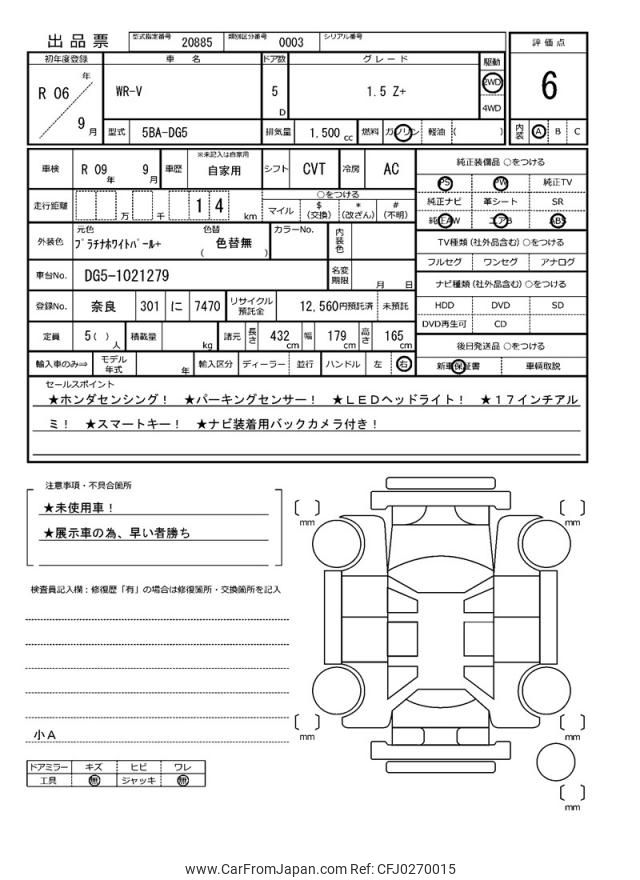 出品票
型式指定番号 20885 類別区分番号 0003 シリアル番号
評価点
6
内装 A B C
初年度登録 車名 ドア数 グレード 駆動
R 06 年 9 月
WR-V 5 D 1.5 Z+ 2WD 4WD
型式 5BA-DG5 排気量 1.500 cc 燃料 ガソリン 軽油 ( )
車検 R 09 年 9 月 車歴 ※未記入は自家用 自家用 シフト CVT 冷房 AC
走行距離 万 千 1 4 km
○をつける
マイル $(交換) *(改ざん) #(不明)
外装色 元色 ﾌﾟﾗﾁﾅﾎﾜｲﾄﾊﾟｰﾙ+ 色替 ( 色替無 ) カラーNo. 内装色
車台No. DG5-1021279 名変期限 月 日
登録No. 奈良 301 に 7470 リサイクル預託金 12,560円預託済 未預託
定員 5( ) 人 積載量 kg 諸元 長さ 432 cm 幅 179 cm 高さ 165 cm
輸入車のみ⇒ モデル年式 年 輸入区分 ディーラー 並行 ハンドル 左 右
純正装備品 ○をつける
PS PW 純正TV
純正ナビ 革シート SR
純正AW エアB ABS
TV種類(社外品含む) ○をつける
フルセグ ワンセグ アナログ
ナビ種類(社外品含む) ○をつける
HDD DVD SD
DVD再生可 CD
後日発送品 ○をつける
新車保証書 車輌取説
セールスポイント
★ホンダセンシング! ★パーキングセンサー! ★LEDヘッドライト! ★17インチアル
ミ! ★スマートキー! ★ナビ装着用バックカメラ付き!
注意事項・不具合箇所
★未使用車!
★展示車の為、早い者勝ち
検査員記入欄:修復歴「有」の場合は修復箇所・交換箇所を記入
小A
ドアミラー キズ ヒビ ワレ
工具 無 ジャッキ 無
mm
mm
mm
mm
mm
www.CarFromJapan.com Ref: CFJ0270015